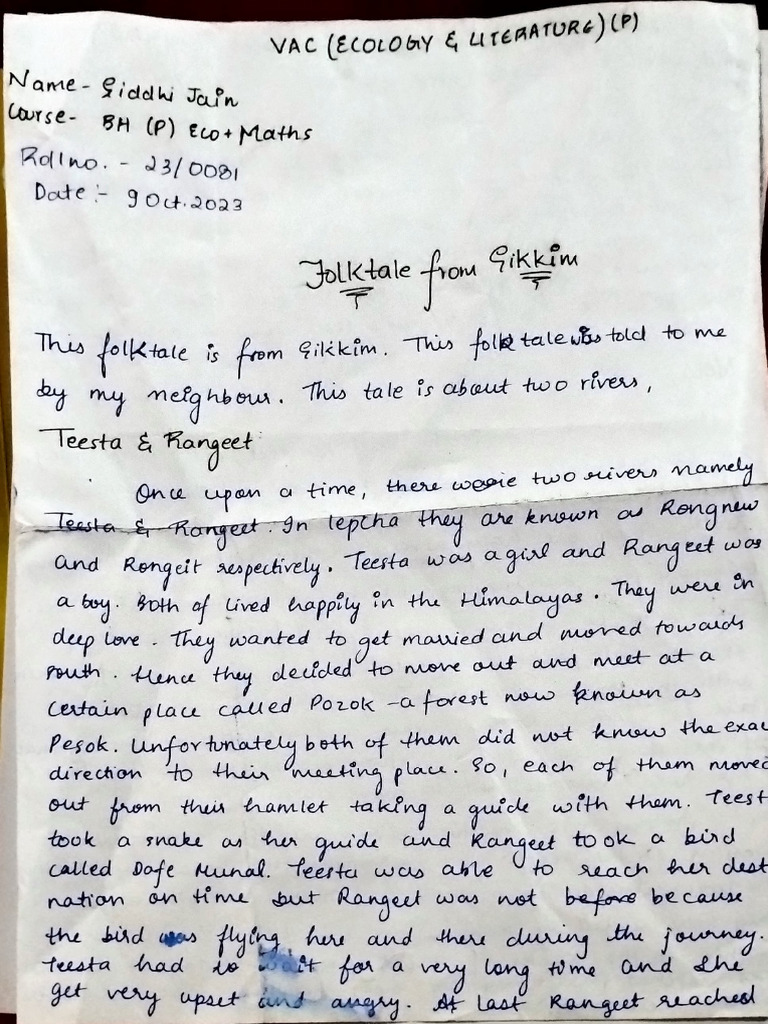 VAC (ECOLOGY & LITERATURE) (P)
Name - Siddhi Jain
Course - BH (P) Eco + Maths
Roll no. - 23/0081
Date :- 9 Oct. 2023
Folktale from Sikkim
This folktale is from Sikkim. This folk tale was told to me
by my neighbour. This tale is about two rivers,
Teesta & Rangeet
Once upon a time, there were two rivers namely
Teesta & Rangeet. In lepcha they are known as Rongnew
and Rongeit respectively. Teesta was a girl and Rangeet was
a boy. Both of lived happily in the Himalayas. They were in
deep love. They wanted to get married and moved towards
south. Hence they decided to move out and meet at a
certain place called Pozok - a forest now known as
Pesok. Unfortunately both of them did not know the exac
direction to their meeting place. So, each of them move
out from their hamlet taking a guide with them. Teest
took a snake as her guide and Rangeet took a bird
called Dafe Munal. Teesta was able to reach her dest
nation on time but Rangeet was not before because
the bird was flying here and there during the journey.
Teesta had to wait for a very long time and she
get very upset and angry. At last Rangeet reached